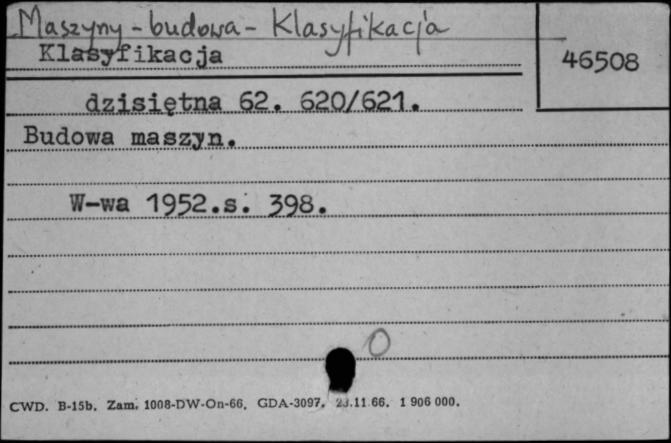 Maszyny - budowa - Klasyfikacja
Klasyfikacja
46508
dzisiętna 62. 620/621.
Budowa maszyn.
W-wa 1952.s. 398.
0
CWD. B-15b. Zam. 1008-DW-On-66. GDA-3097. 23.11.66. 1 906 000.